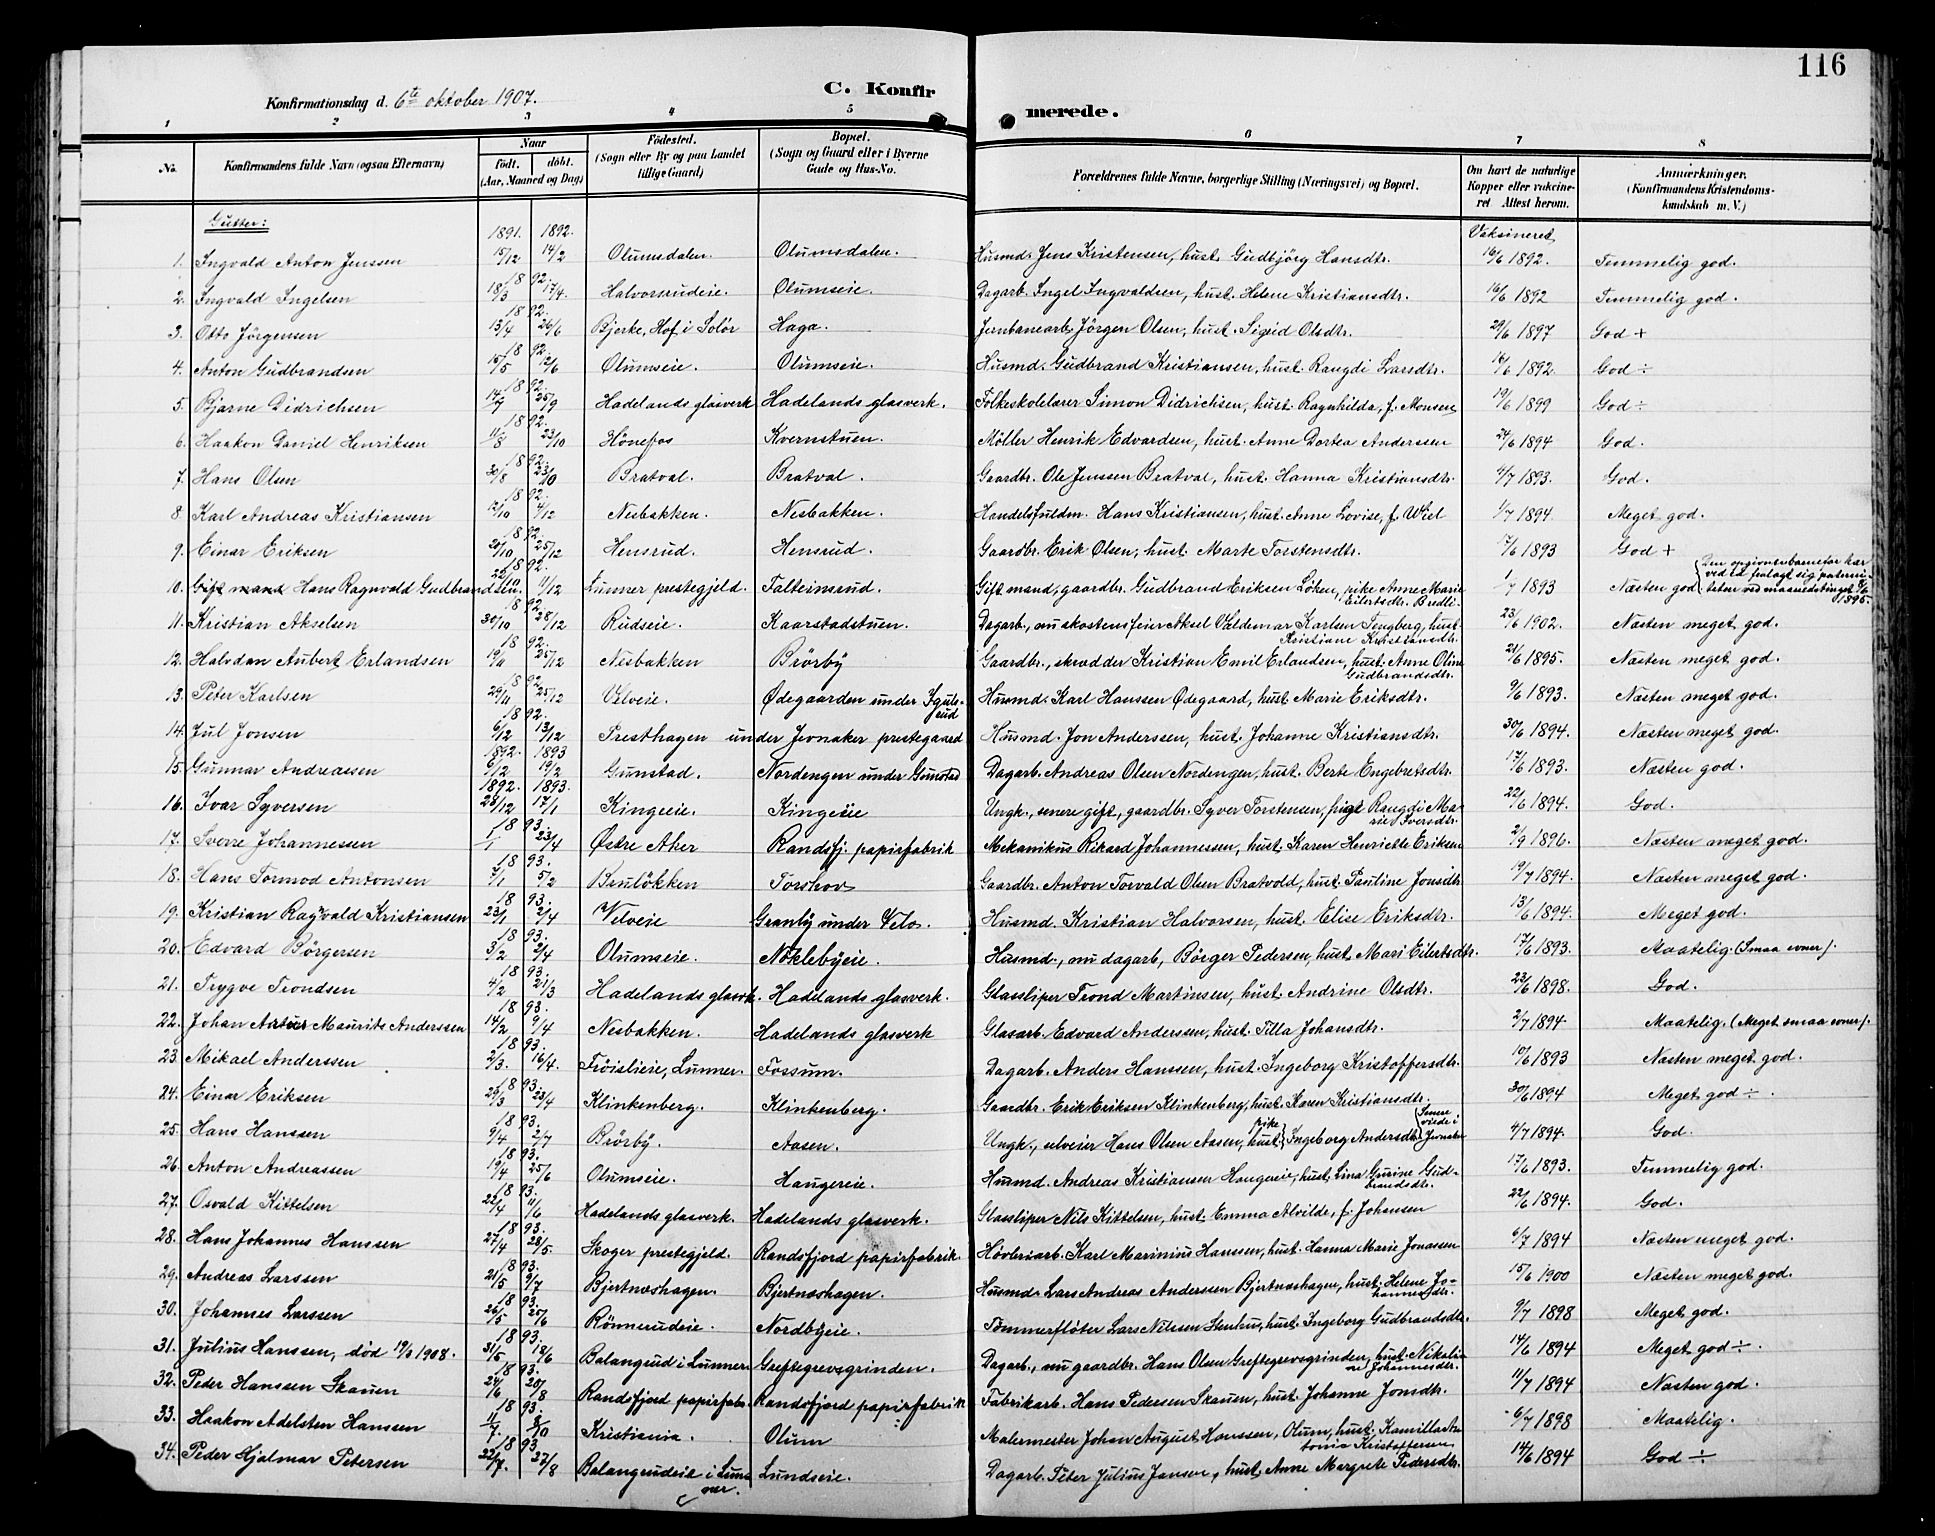 116
Konfirmationsdag d. 6te oktober 1907.
C. Konfir
merede.
1 2 3 4 5 6 7 8
No. Konfirmandens fulde Navn (ogsaa Efternavn) Naar født. døbt. (Aar, Maaned og Dag) Fødested. (Sogn eller By og paa Landet tillige Gaard) Bopæl. (Sogn og Gaard eller i Byerne Gade og Hus-No. Forældrenes fulde Navne, borgerlige Stilling (Næringsvei) og Bopæl. Om havt de naturlige Kopper eller vaksineret Attest herom. Anmærkninger. (Konfirmandens Kristendomskundskab m. V.)
Gutter: 1891. 1892. Vaksineret
1. Ingvald Anton Jenssen 15/12 14/2 Olumsdalen. Olumsdalen. Husmd. Jens Kristensen, hust. Gudbjörg Hansdtr. 16/6 1892. Temmelig god.
18 92.
2. Ingvald Ingelsen 18/3 17/4. Halvorsrudeie. Olumseie. Dagarb. Ingel Ingvaldsen, hust. Helene Kristiansdtr. 16/6 1892 Temmelig god.
18 92.
3. Otto Jörgensen 13/4 26/6 Bjerke, Hof i Solör Haga. Jernbanearb. Jörgen Olsen, hust. Sigrid Olsdtr. 29/6 1897 God +
18 92.
4. Anton Gudbrandsen 15/5 12/6 Olumseie. Olumseie. Husmd. Gudbrand Kristiansen, hust. Rangdi Larsdtr. 16/6 1892. God ÷
18 92.
5. Bjarne Didrichsen 14/7 25/9 Hadelands glasverk Hadelands glasverk. Folkeskolelærer Simon Didrichsen, hust. Ragnhilda, f. Monsen 19/6 1899 God ÷
18 92.
6. Haakon Daniel Henriksen 11/8 23/10 Hönefos Kvernstuen. Möller Henrik Edvardsen, hust. Anne Dortea Anderssen 24/6 1894 God.
18 92.
7. Hans Olsen 30/8 23/10 Bratval. Bratval. Gaardbr. Ole Jenssen Bratval, hust. Hanna Kristiansdtr. 4/7 1893. God.
18 92.
8. Karl Andreas Kristiansen 12/10 4/12 Nesbakken. Nesbakken. Handelsfuldm. Hans Kristiansen, hust. Anne Lovise, f. Wiel 1/7 1894 Meget god.
18 92.
9. Einar Eriksen 20/10 25/12 Hensrud. Hensrud. Gaardbr. Erik Olsen, hust. Marte Torstensdtr. 17/6 1893 God +
18 92.
10. Gift mand Hans Ragnvald Gudbrandsen. 22/10 11/12 Lunner prestegjeld. Falteinsrud. Gift mand, gaardbr. Gudbrand Eriksen Löken, pike Anne Marie Eilertsdtr. 1/7 1893 Næsten god
18 92.
11. Kristian Akselsen 30/10 28/12 Rudseie. Kaarstadstuen. Dagarb., nu skostensfeier Aksel Valdemar Karlsen Tingberg, hust. Kristiane Kristiansdtr. 23/6 1902. Næsten meget god.
18 92.
12. Halvdan Aubert Erlandsen 19/11 25/12 Nesbakken Brörby Gaardbr., skrædder Kristian Emil Erlandsen, hust. Anne Oline Gudbrandsdtr. 21/6 1895. Næsten meget god.
18 92.
13. Peter Karlsen 29/11 25/12 Velveie. Ødegaarden under Igulsrud Husmd. Karl Hanssen Ødegaard, hust. Marie Eriksdtr. 9/6 1893. Næsten meget god.
18 92.
14. Jul Jonsen 6/12 13/12 Presthagen under Jevnaker prestegaard Husmd. Jon Anderssen, hust. Johanne Kristiansdtr. 30/6 1894. Næsten meget god.
1892. 1893
15. Gunnar Andreassen 6/12 19/2 Gunstad. Nordengen under Gunstad Dagarb. Andreas Olsen Nordengen, hust. Berte Engebretsdtr. 17/6 1893. Næsten god.
1892. 1893.
16. Ivar Syversen 28/12 17/1 Kingeeie. Kingeeie Ungk., senere gift, gaardbr. Syver Torstensen, pige Rangdi Marie Iversdtr. 22/6 1894. God.
18 93.
17. Sverre Johannessen 1/1 23/4 Østre Aker Randsfj. papirfabrik Mekanikus Rikard Johannessen, hust. Karen Henriette Eriksen 2/9 1896. Næsten meget god.
18 93.
18. Hans Tormod Antonsen 7/1 5/2 Bruløkken Torshov Gaardbr. Anton Torvald Olsen Bratvold, hust. Pauline Jonsdtr. 19/7 1894. Næsten meget god.
18 93.
19. Kristian Ragnvald Kristiansen 23/1 2/4 Velveie Granly under Velo. Husmd. Kristian Halvorsen, hust. Elise Eriksdtr. 13/6 1894. Meget god.
18 93.
20. Edvard Börgersen 3/2 2/4 Olumseie. Nöklebyeie. Husmd., nu dagarb, Börger Pedersen, hust. Mari Eilertsdtr. 17/6 1893. Maatelig. (Smaa evner).
18 93.
21. Trygve Trondsen 4/2 21/3 Hadelands glasvk. Hadelands glasverk. Glassliper Trond Martinsen, hust. Andrine Olsdtr. 23/6 1898. God.
18 93.
22. Johan Artur Maurits Anderssen 14/2 9/4 Nesbakken. Hadelands glasverk Glasarb. Edvard Anderssen, hust. Tilla Johansdtr. 2/7 1894. Maatelig. (Meget smaa evner).
18 93.
23. Mikael Anderssen 2/3. 16/4. Fröislieie, Lunner. Fossum. Dagarb. Anders Hanssen, hust. Ingeborg Kristoffersdtr. 10/6 1893 Næsten meget god.
18 93.
24. Einar Eriksen 29/3 23/4 Klinkenberg. Klinkenberg. Gaardbr. Erik Eriksen Klinkenberg, hust. Karen Kristiansdtr. 30/6 1894 Meget god ÷.
18 93.
25. Hans Hanssen 9/4 2/7 Brörby. Aasen. Ungk., selveier Hans Olsen Aasen, hust. pike Ingeborg Andersdtr. 4/7 1894. God.
18 93.
26. Anton Andreassen 19/4 25/6 Olumseie. Haugereie. Husmd. Andreas Kristiansen Haugereie, hust. Lina Gurine Gudbrandsdtr. 17/6 1893. Temmelig god.
18 93.
27. Osvald Kittelsen 22/4 11/6 Hadelands glasverk. Hadelands glasverk. Glassliper Nils Kittelsen, hust. Emma Alvilde, f. Johansen 22/6 1894. God.
18 93.
28. Hans Johannes Hanssen 27/4 28/5. Skoger prestegjeld. Randsfjord papirfabrik Hövleriarb. Karl Marinius Hanssen, hust. Hanna Marie Jonassen 6/7 1894 Næsten meget god.
18 93.
29. Andreas Larssen 21/5 9/7 Bjertnæshagen. Bjertnæshagen. Husmd. Lars Andreas Anderssen Bjertnæshagen, hust. Helene Johannesdtr. 15/6 1900 Næsten meget god.
18 93.
30. Johannes Larssen 26/5 25/6 Rönnerudeie. Nordbyeie. Tømmerflöter Lars Nilssen Stenhus, hust. Ingeborg Gudbrandsdtr. 9/7 1898 Meget god.
18 93.
31. Julius Hanssen, död 19/3 1908. 31/5 18/6 Balangrud i Lunner Greftegrevsgrinden. Dagarb., nu gaardbr. Hans Olsen Greftegrevsgrinden, hust. Nikoline Johannesdtr. 14/6 1894 Meget god ÷.
18 93.
32. Peder Hanssen Skauen 24/6 20/8 Randsfjord papirfabr. Randsfjord papirfabrik Fabrikarb. Hans Pedersen Skauen, hust. Johanne Jonsdtr. 11/7 1894 Næsten god.
18 93.
33. Haakon Adelsten Hanssen 11/7. 8/10 Kristiania. Olum Malermester Johan August Hanssen, Olum, hust. Kamilla Antonia Kristoffersen 6/7 1898 Maatelig.
18 93.
34. Peder Hjalmar Petersen 22/7. 27/8 Balangrudeie i Lunner. Lundseie. Dagarb. Peter Julius Jansen, hust. Anne Margrete Pedersdtr. 14/6 1894 God ÷